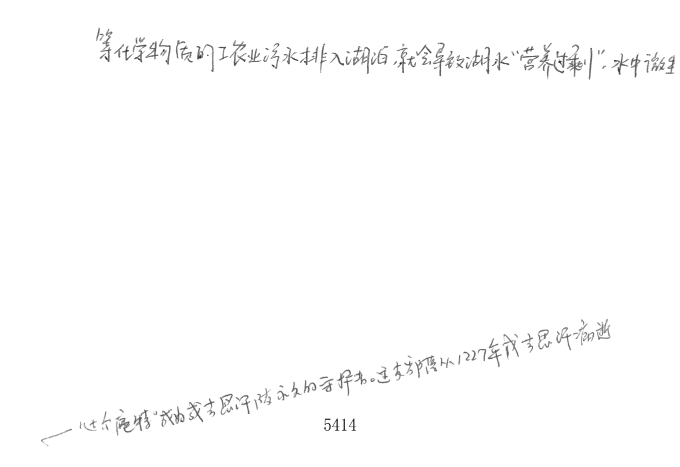 等化学物质的工农业污水排入湖泊,就会导致湖水“营养过剩”,水中微生
一“达尔扈特”成为成吉思汗陵永久的守护者。这支部落从1227年成吉思汗病逝
5414